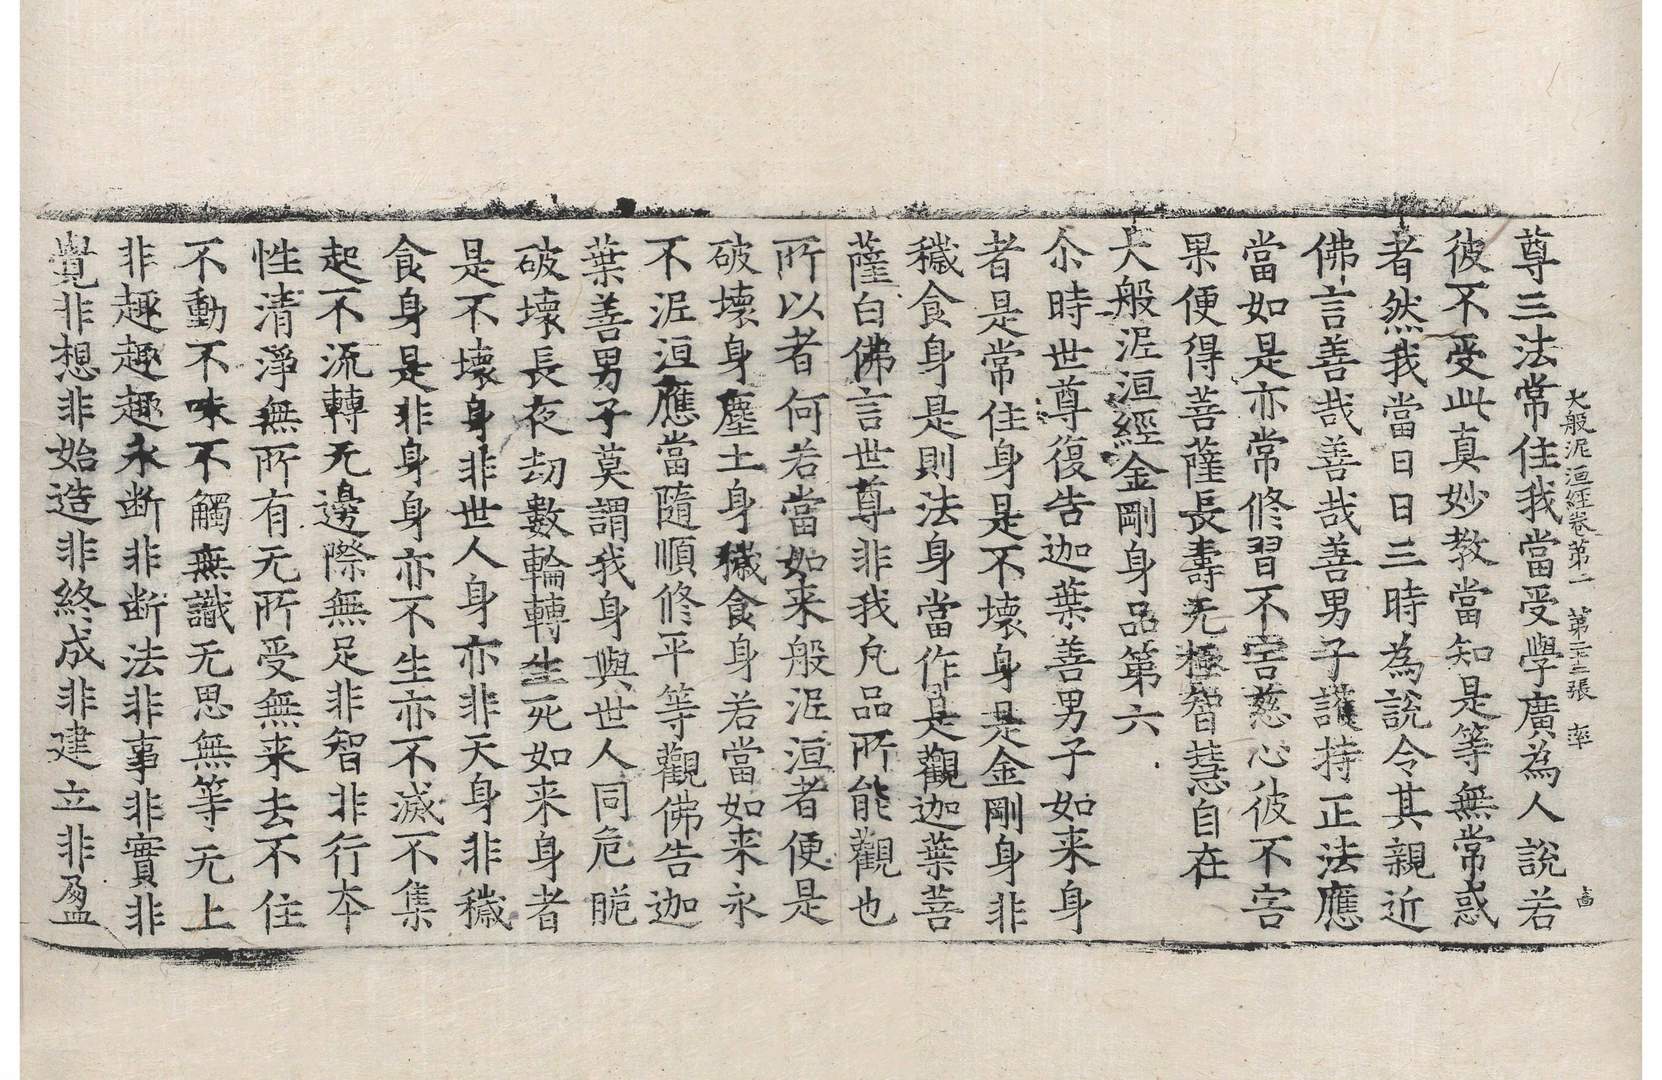 大般泥洹經卷第二 第二十三張 率
尊三法常住我當受學廣為人說若
彼不受此真妙教當知是等無常惑
者然我當日日三時為說令其親近
佛言善哉善哉善男子護持正法應
當如是亦常修習不害慈心彼不害
果便得菩薩長壽无極智慧自在
大般泥洹經金剛身品第六
尒時世尊復告迦葉善男子如来身
者是常住身是不壞身是金剛身非
穢食身是則法身當作是觀迦葉菩
薩白佛言世尊非我凡品所能觀也
所以者何若當如来般泥洹者便是
破壞身塵土身穢食身若當如来永
不泥洹應當隨順修平等觀佛告迦
葉善男子莫謂我身與世人同危脆
破壞長夜劫數輪轉生死如来身者
是不壞身非世人身亦非天身非穢
食身是非身身亦不生亦不滅不集
起不流轉无邊際無足非智非行本
性清淨無所有无所受無来去不住
不動不味不觸無識无思無等无上
非趣趣趣永断非断法非事非實非
覺非想非始造非終成非建立非盈